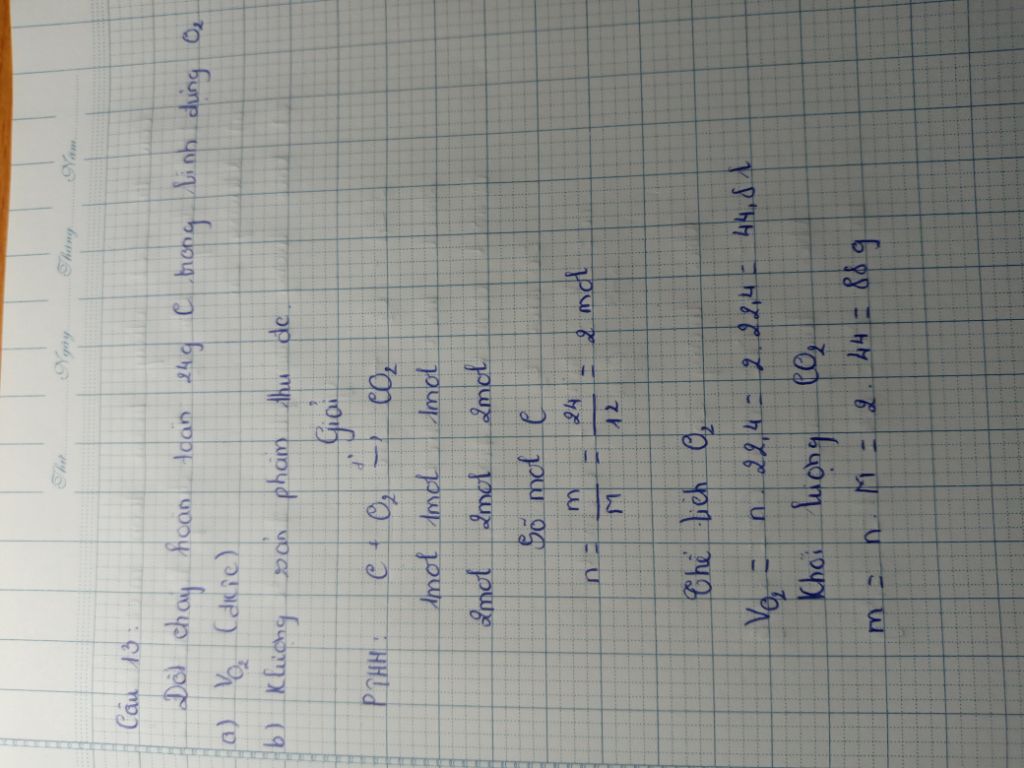 Thứ ........ Ngày ........ Tháng ........ Năm ........
Câu 13:
Đốt cháy hoàn toàn 24g C trong bình đựng O₂
a) V_O₂ (đktc)
b) Klượng sản phẩm thu đc.
Giải
PTHH: C + O₂ →(t°) CO₂
1mol 1mol 1mol
2mol 2mol 2mol
Số mol C
n = m/M = 24/12 = 2 mol
Thể tích O₂
V_O₂ = n . 22,4 = 2 . 22,4 = 44,8 l
Khối lượng CO₂
m = n . M = 2 . 44 = 88 g